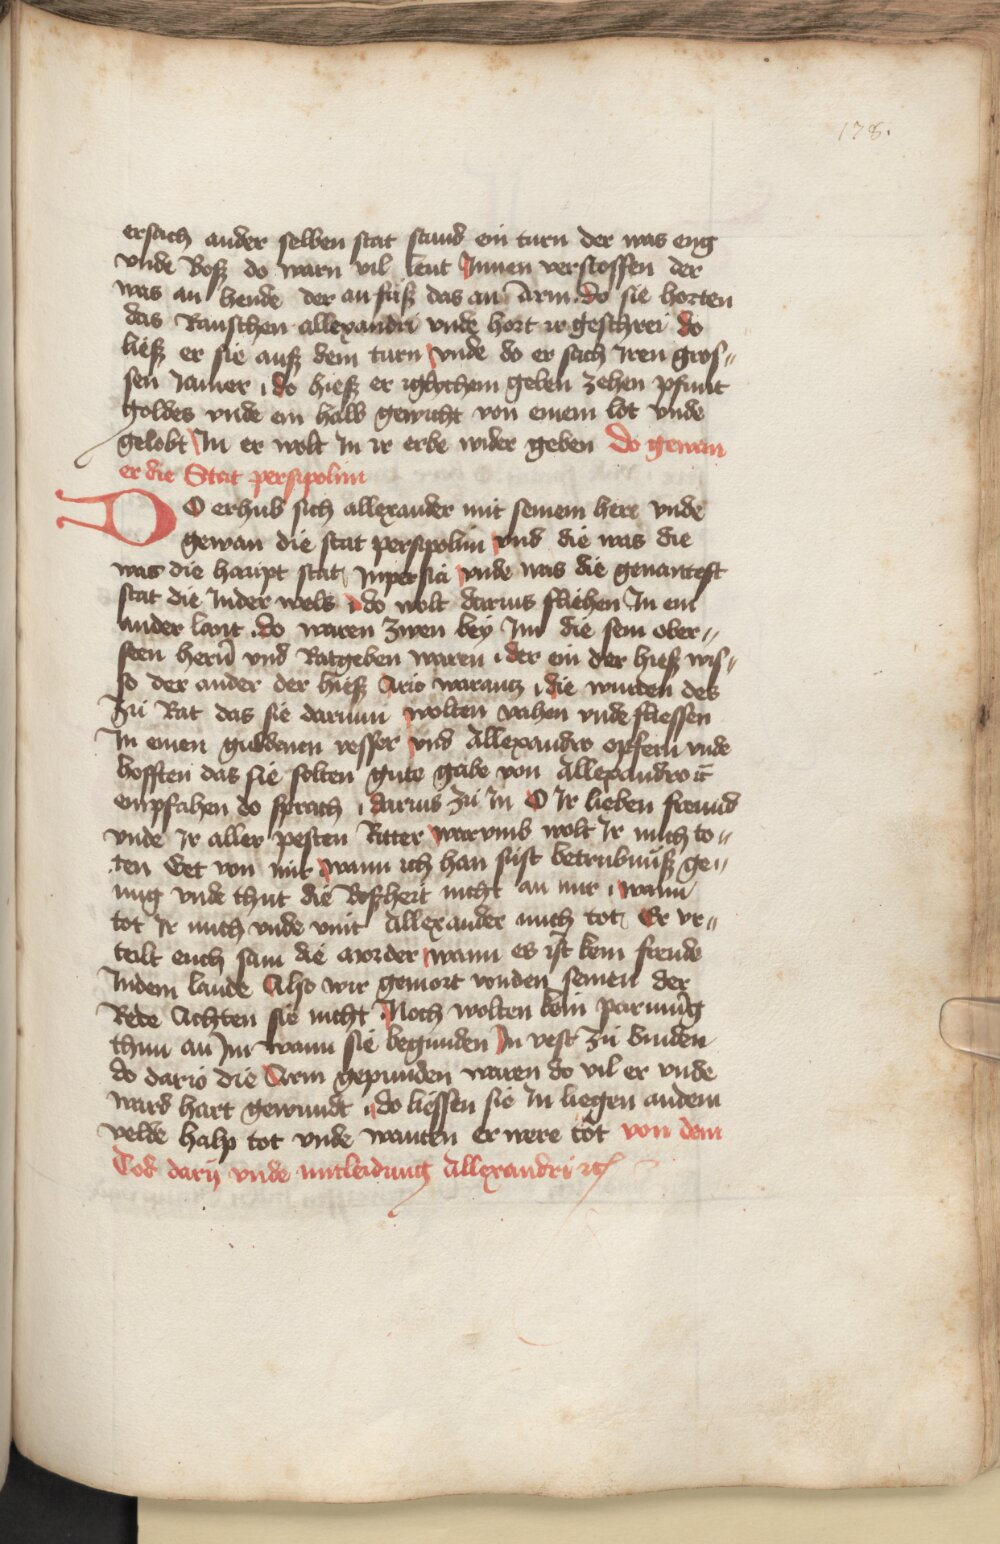 178.
ersach ander selben stat stund ein turn der was eng
vnde Boß do warn vil leut Innen verslossen der
was an hende der an fuß das an Arm do sie horten
das Rauschen allexandri vnde hort ir geschrei do
ließ er sie auß dem turn vnde do er sach Iren gros„
sen Iamer do hieß er iglichem geben zehen pfunt
goldes vnde ein halb gewicht von einem lot vnde
gelobt In er wolt In ir erbe wider geben Do gewan
er die Stat persipolim
DO erhub sich allexander mit seinem here vnde
gewan die stat persipolim vnd die was die
was die haupt stat Inpersia vnde was die genantest
stat die Inder wels do wolt darius fliehen In ein
ander lant do waren zwen bey Im die sein ober„
sten hern̄ vnd Ratgeben waren der ein der hieß wis„
so der ander der hieß Ario warantz die wurden des
zu Rat das sie darium wolten vahen vnde sliessen
In einen guldenen vesser vnd Allexandro opfern vnde
hofften das sie solten gute gabe von Allexandro
empfahen do sprach darius zu In O Ir lieben freund
vnde Ir aller pesten Ritter warvmb wolt Ir mich to„
ten Get von mir wann ich han sust betrubnuß ge„
nug vnde thut die Boßheit nicht an mir wann
tot Ir mich vnde vint Allexander mich tot Er vr„
teilt euch sam die morder wann es ist kein freude
Indem lande Also wir gemort vonden seinen der
Rede Achten sie nicht Noch wolten kein parmu̅g
thun an Im wann sie begunden In vest zu binden
do dario die Arm gepunden waren do vil er vnde
ward hart gewundt do liessen sie In liegen andem
velde halp tot vnde wanten er were tot von dem
Tod darij vnde mitleidung Allexandri ꝛc